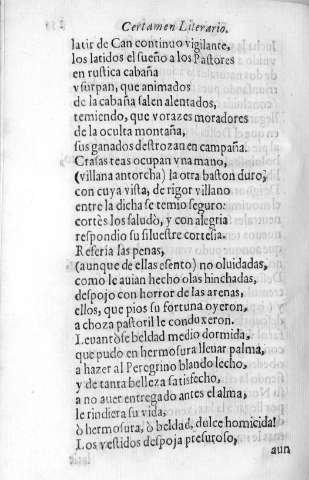 Certamen Literario.
latir de Can continuo vigilante,
los latidos el sueño a los Pastores
en rustica cabaña
vsurpan, que animados
de la cabaña salen alentados,
temiendo, que vorazes moradores
de la oculta montaña,
sus ganados destrozan en campaña.
Crasas teas ocupan vna mano,
(villana antorcha) la otra baston duro,
con cuya vista, de rigor villano
entre la dicha se temio seguro:
cortès los saludò, y con alegria
respondio su siluestre cortesia.
Referia las penas,
(aunque de ellas esento) no oluidadas,
como le auian hecho olas hinchadas,
despojo con horror de las arenas,
ellos, que pios su fortuna oyeron,
a choza pastoril le conduxeron.
Leuantòse beldad medio dormida,
que pudo en hermosura lleuar palma,
a hazer al Peregrino blando lecho,
y de tanta belleza satisfecho,
a no auer entregado antes el alma,
le rindiera su vida,
ò hermosura, ò beldad, dulce homicida!
Los vestidos despoja presuroso,
aun